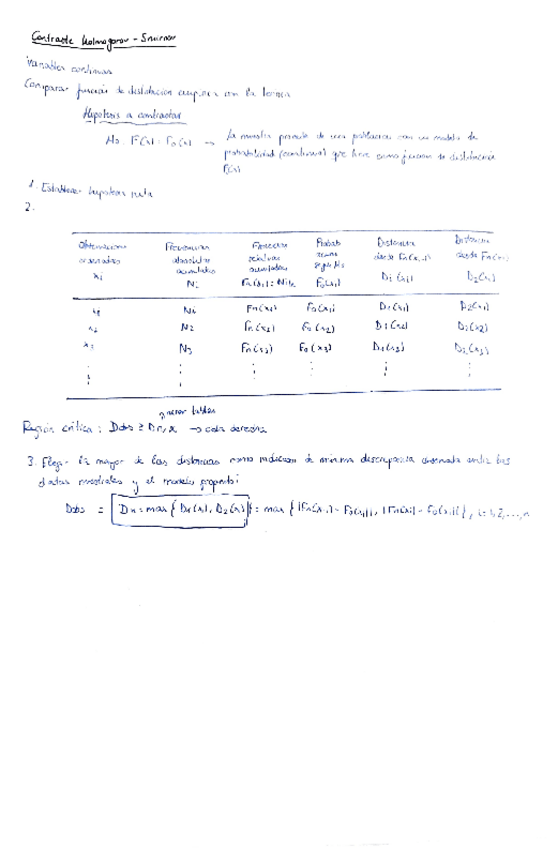 Contraste Kolmogorov - Smirnov
Variables continuas
Comparar función de distribución empírica con la teórica
Hipótesis a contrastar
H₀: F(x) = F₀(x) → La muestra procede de una población con un modelo de
probabilidad (continuo) que tiene como función de distribución
F₀(x)
1. Establecer hipótesis nula
2.
Observaciones Frecuencias Frecuencias Probab Distancia Distancia
ordenadas absolutas relativas teóricas desde Fn(xi-1) desde Fn(xi)
acumuladas acumuladas según H₀
xi Ni Fn(xi) = Ni/n F₀(xi) D₁(xi) D₂(xi)
x₁ N₁ Fn(x₁) F₀(x₁) D₁(x₁) D₂(x₁)
x₂ N₂ Fn(x₂) F₀(x₂) D₁(x₂) D₂(x₂)
x₃ N₃ Fn(x₃) F₀(x₃) D₁(x₃) D₂(x₃)
⋮ ⋮ ⋮ ⋮ ⋮ ⋮
tablas
Región crítica: Dobs ≥ Dn,α → cola derecha
3. Elegir la mayor de las distancias como indicador de máxima discrepancia observada entre los
datos muestrales y el modelo propuesto:
Dobs = Dn = max {D₁(xi), D₂(xi)} = max {|Fn(xi-1) - F₀(xi)|, |Fn(xi) - F₀(xi)|}, i = 1, 2, ..., n